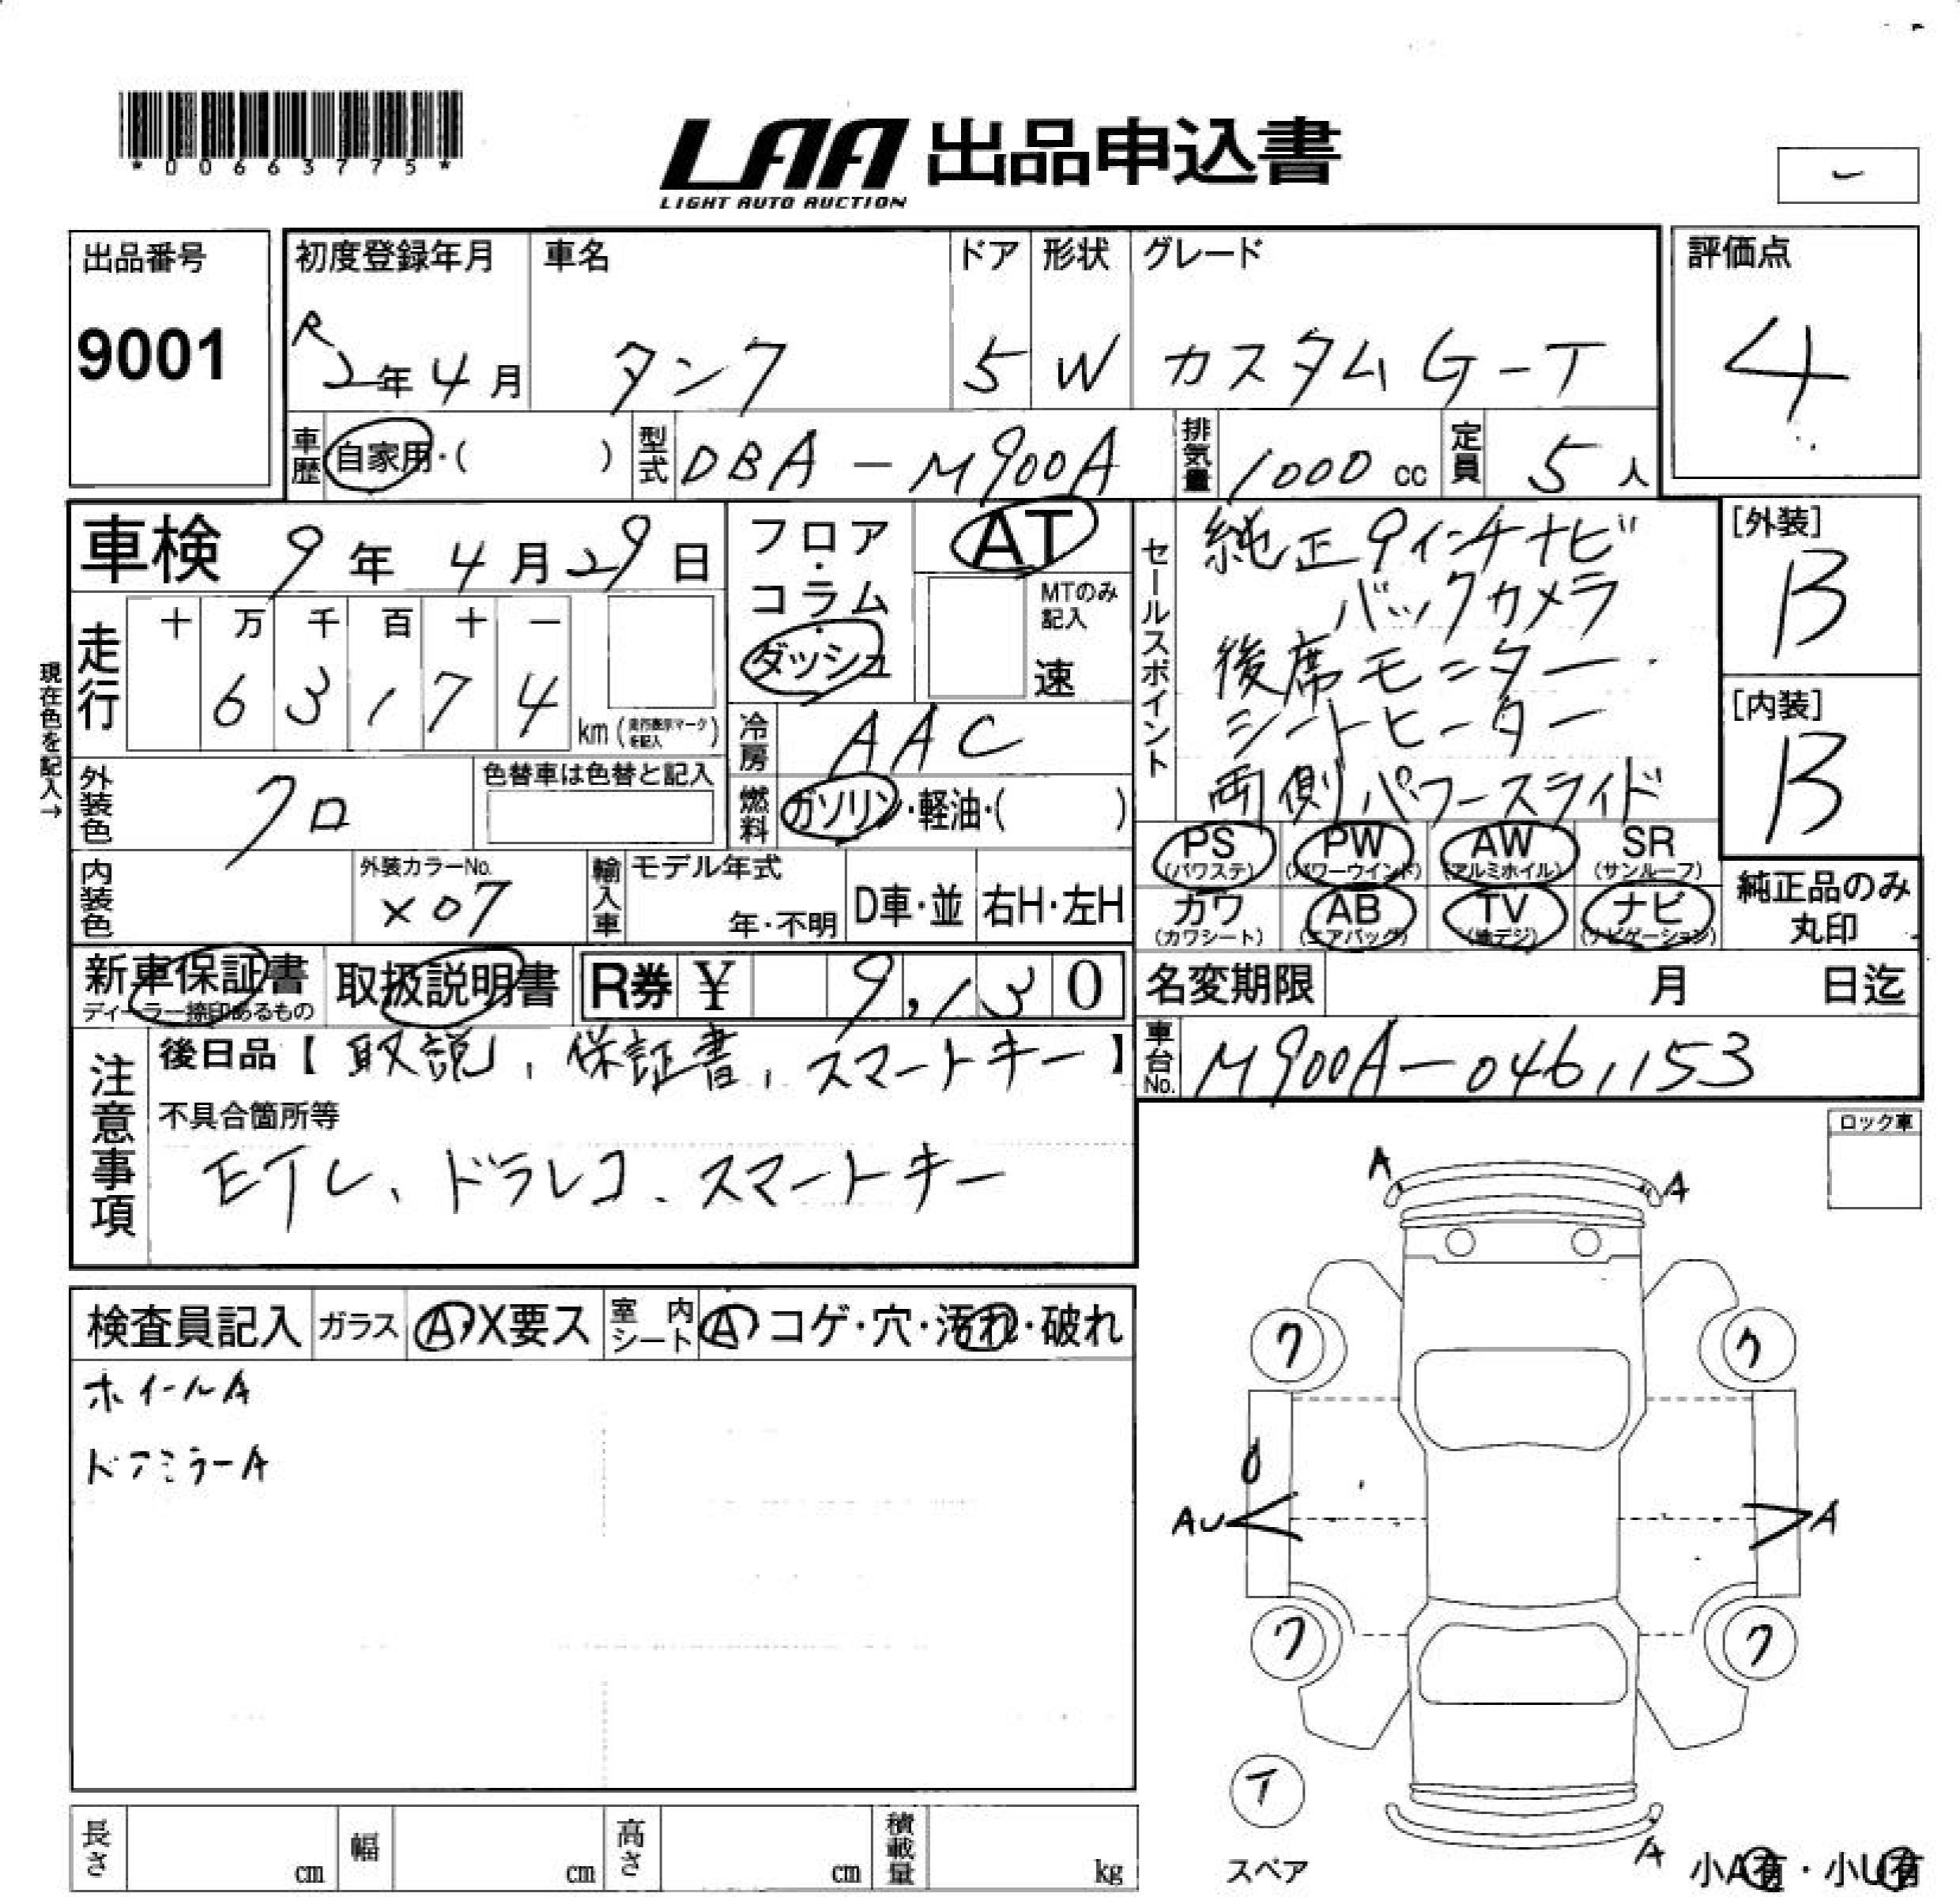 *00663775*
LAA 出品申込書
LIGHT AUTO AUCTION
出品番号
9001
初度登録年月
R2年4月
車名
タンク
ドア
5
形状
W
グレード
カスタムG-T
評価点
4
車歴 自家用・( )
型式 DBA-M900A
排気量 1000 cc
定員 5 人
車検 9年4月29日
現在色を記入→
走行
十 万 千 百 十 一
6 3 1 7 4
km
フロア・
コラム・
ダッシュ
AT
MTのみ
記入
速
冷房 AAC
燃料 ガソリン・軽油・( )
外装色 クロ
色替車は色替と記入
内装色
外装カラーNo.
X07
輸入車
モデル年式
年・不明
D車・並
右H・左H
セールスポイント
純正9インチナビ
バックカメラ
後席モニター
シートヒーター
両側パワースライド
[外装]
B
[内装]
B
PS
(パワステ)
PW
(パワーウインド)
AW
(アルミホイル)
SR
(サンルーフ)
カワ
(カワシート)
AB
(エアバッグ)
TV
(地デジ)
ナビ
(ナビゲーション)
純正品のみ
丸印
新車保証書
ディーラー捺印あるもの
取扱説明書
R券 ¥ 9,130
名変期限 月 日迄
車台No. M900A-0461153
注意事項
後日品【取説、保証書、スマートキー】
不具合箇所等
ETC、ドラレコ、スマートキー
ロック車
検査員記入
ガラス A・X要ス
室内シート A コゲ・穴・汚れ・破れ
ホイールA
ドアミラーA
A A
ワ ワ
AU A
ワ ワ
テ
スペア
A
小A有・小U有
長さ cm
幅 cm
高さ cm
積載量 kg